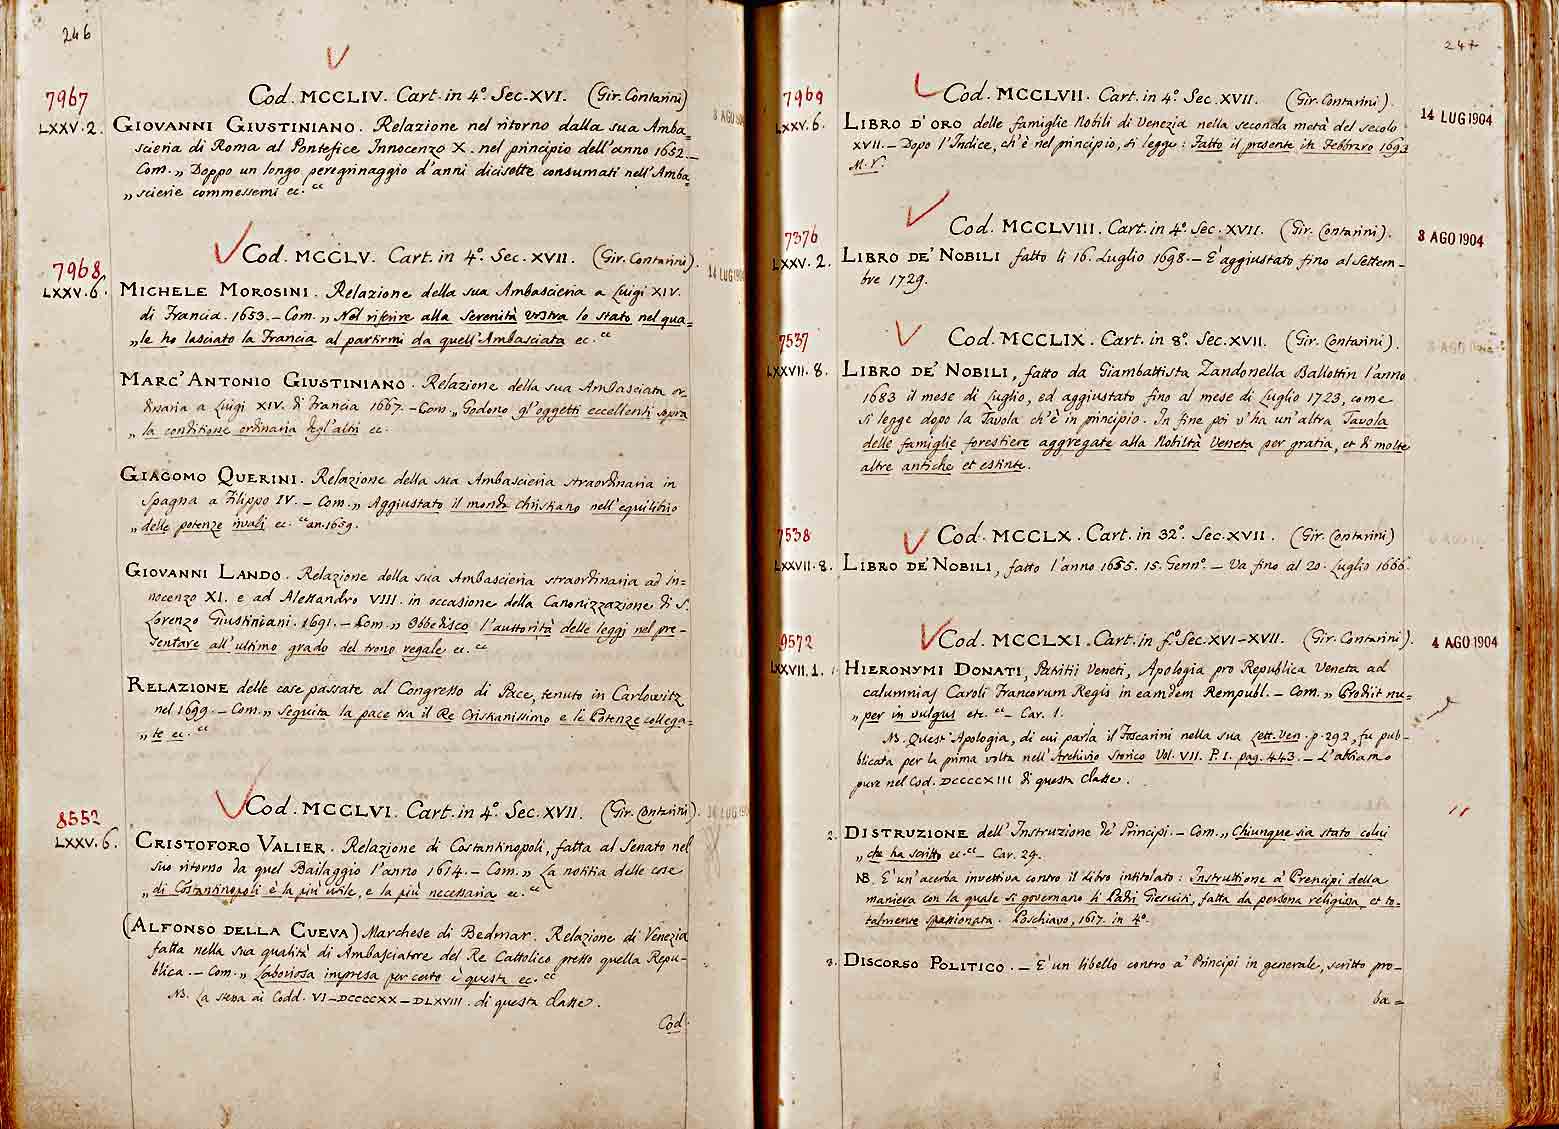 246
7967
LXXV. 2.
Cod. MCCLIV. Cart. in 4.º Sec. XVI. (Gir. Contarini)
8 AGO 1904
GIOVANNI GIUSTINIANO. Relazione nel ritorno dalla sua Amba=
scieria di Roma al Pontefice Innocenzo X. nel principio dell'anno 1652.—
Com. „ Doppo un longo peregrinaggio d'anni dicisotte consumati nell'Amba=
„ scierie commessemi ec. “
7968
LXXV. 6.
Cod. MCCLV. Cart. in 4.º Sec. XVII. (Gir. Contarini).
14 LUG 1904
MICHELE MOROSINI. Relazione della sua Ambascieria a Luigi XIV.
di Francia. 1653. — Com. „ Nel riferire alla Serenità vostra lo stato nel qua=
„ le ho lasciato la Francia al partirmi da quell'Ambasciata ec. “
MARC'ANTONIO GIUSTINIANO. Relazione della sua Ambasciata or=
dinaria a Luigi XIV. di Francia 1667. — Com. „ Godono gl'oggetti eccellenti sopra
„ la conditione ordinaria degl'altri ec.
GIACOMO QUERINI. Relazione della sua Ambascieria straordinaria in
Spagna a Filippo IV. — Com. „ Aggiustato il mondo christiano nell'equilibrio
„ delle potenze rivali ec. “ an. 1659.
GIOVANNI LANDO. Relazione della sua Ambascieria straordinaria ad In=
nocenzo XI. e ad Alessandro VIII. in occasione della Canonizzazione di S.
Lorenzo Giustiniani. 1691. — Com. „ Obbedisco l'auttorità delle leggi nel pre=
sentare all'ultimo grado del trono regale ec. “
RELAZIONE delle cose passate al Congresso di Pace, tenuto in Carlowitz
nel 1699. — Com. „ Seguita la pace tra il Re Cristianissimo e le Potenze collega=
„ te ec. “
8552
LXXV. 6.
Cod. MCCLVI. Cart. in 4.º Sec. XVII. (Gir. Contarini).
14 LUG 1904
CRISTOFORO VALIER. Relazione di Costantinopoli, fatta al Senato nel
suo ritorno da quel Bailaggio l'anno 1614. — Com. „ La notitia delle cose
„ di Costantinopoli è la più utile, e la più necessaria ec. “
(ALFONSO DELLA CUEVA) Marchese di Bedmar. Relazione di Venezia
fatta nella sua qualità di Ambasciatore del Re Cattolico presso quella Repu=
blica. — Com. „ Laboriosa impresa per certo è questa ec. “
NB. La stessa ai Codd. VI—DCCCCXX—DLXVIII. di questa Classe.
Cod.
247
7969
LXXV. 6.
Cod. MCCLVII. Cart. in 4.º Sec. XVII. (Gir. Contarini).
14 LUG 1904
LIBRO D'ORO delle famiglie Nobili di Venezia nella seconda metà del secolo
XVII. — Dopo l'Indice, ch'è nel principio, si legge: Fatto il presente in Febbraro 1693
M. V.
7376
LXXV. 2.
Cod. MCCLVIII. Cart. in 4.º Sec. XVII. (Gir. Contarini).
8 AGO 1904
LIBRO DE' NOBILI fatto li 16. Luglio 1698. — E' aggiustato fino al Settem=
bre 1729.
7537
LXXVII. 8.
Cod. MCCLIX. Cart. in 8.º Sec. XVII. (Gir. Contarini).
8 AGO 1904
LIBRO DE' NOBILI, fatto da Giambattista Zandonella Ballottin l'anno
1683 il mese di Luglio, ed aggiustato fino al mese di Luglio 1723, come
si legge dopo la Tavola ch'è in principio. In fine poi v'ha un'altra Tavola
delle famiglie forestiere aggregate alla Nobiltà Veneta per gratia, et di molte
altre antiche et estinte.
7538
LXXVII. 8.
Cod. MCCLX. Cart. in 32.º Sec. XVII. (Gir. Contarini)
LIBRO DE' NOBILI, fatto l'anno 1655. 15. Gennº. — Va fino al 20. Luglio 1666.
9572
LXXVII. 1.
Cod. MCCLXI. Cart. in fº. Sec. XVI-XVII. (Gir. Contarini).
4 AGO 1904
1. HIERONYMI DONATI, Patritii Veneti, Apologia pro Republica Veneta ad
calumnias Caroli Francorum Regis in eamdem Rempubl. — Com. „ Prodiit nu=
„ per in vulgus etc. “ — Car. 1.
NB. Quest'Apologia, di cui parla il Foscarini nella sua Lett. Ven. p. 292, fu pub=
blicata per la prima volta nell'Archivio Storico Vol. VII. P. I. pag. 443. — L'abbiamo
pure nel Cod. DCCCCXIII di questa classe.
2. DISTRUZIONE dell'Instruzione de' Principi. — Com. „ Chiunque sia stato colui
„ che ha scritto ec. “ — Car. 29.
NB. E' un'acerba invettiva contro il libro intitolato: Instruttione a' Prencipi della
maniera con la quale si governano li Padri Giesuiti, fatta da persona religiosa, et to=
talmente spassionata. Poschiavo, 1617. in 4º.
3. DISCORSO POLITICO. — E' un libello contro a' Principi in generale, scritto pro=
ba=